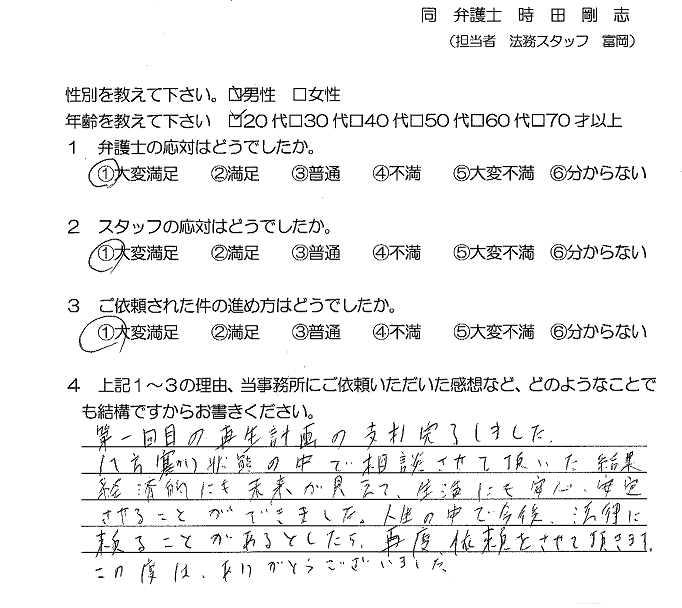 同 弁護士 時 田 剛 志
（担当者 法務スタッフ 富岡）
性別を教えて下さい。☑男性 □女性
年齢を教えて下さい ☑20代□30代□40代□50代□60代□70才以上
1 弁護士の応対はどうでしたか。
①大変満足 ②満足 ③普通 ④不満 ⑤大変不満 ⑥分からない
2 スタッフの応対はどうでしたか。
①大変満足 ②満足 ③普通 ④不満 ⑤大変不満 ⑥分からない
3 ご依頼された件の進め方はどうでしたか。
①大変満足 ②満足 ③普通 ④不満 ⑤大変不満 ⑥分からない
4 上記1～3の理由、当事務所にご依頼いただいた感想など、どのようなことで
も結構ですからお書きください。
第一回目の再生計画の支払完了しました。
状態の中で相談させて頂いた結果
経済的にも未来が見えて、生活にも安心、安定
させることができました。人生の中で今後、法律に
頼ることがあるとしたら、再度、依頼をさせて頂きます。
この度は、ありがとうございました。